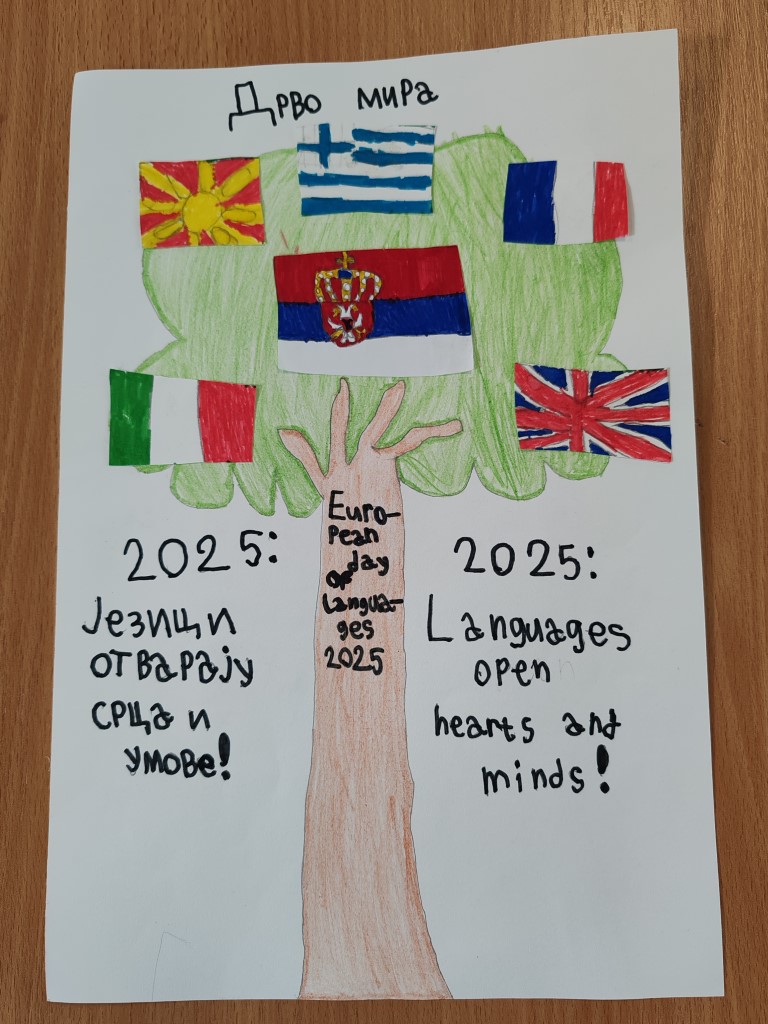 Дрво мира
Euro-
pean
day
of
langua-
ges
2025
2025:
Језици
отварају
срца и
умове!
2025:
Languages
open
hearts and
minds!